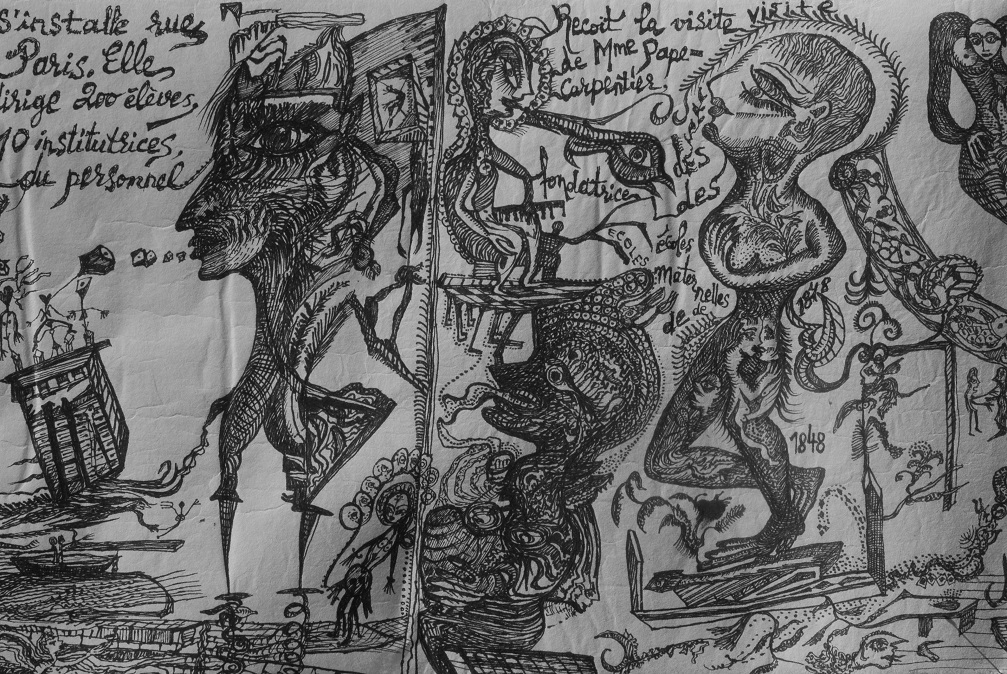 s'installe rue
Paris. Elle
dirige 200 élèves,
10 institutrices,
du personnel
Reçoit la visite visite
de Mme Pape=
Carpentier
fondattrice
des
des
ECOLES
écoles
Mater
nelles
de de
1848
1848